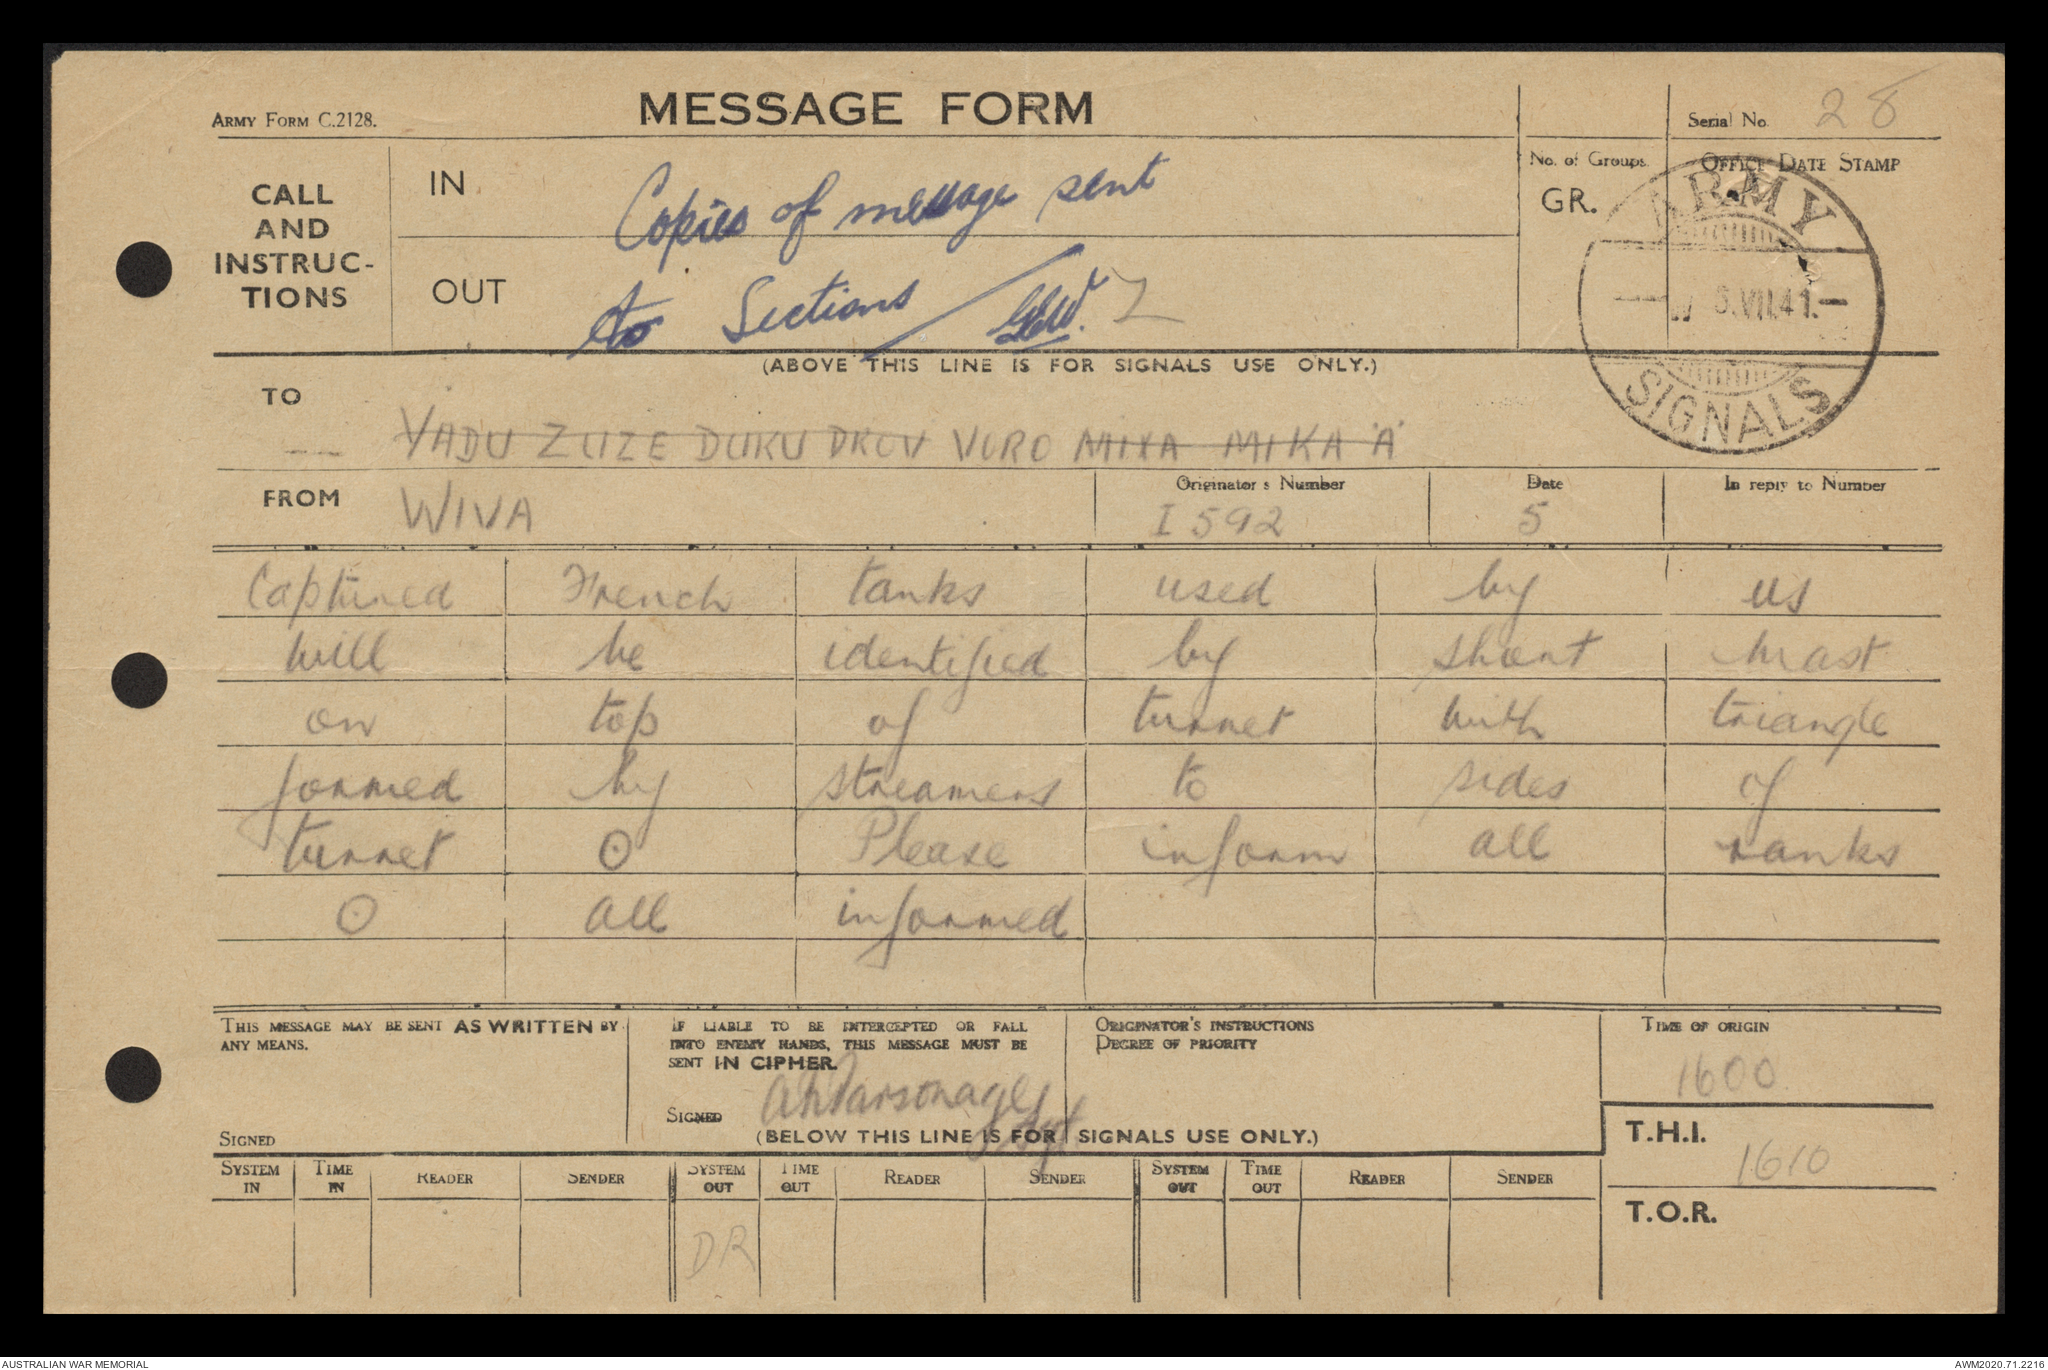 ARMY FORM C.2128.
MESSAGE FORM
Serial No. 28
CALL AND INSTRUC-TIONS
IN
Copies of message sent
OUT
to Sections
No. of Groups.
GR.
OFFICE DATE STAMP
ARMY
VII.41.
SIGNALS
(ABOVE THIS LINE IS FOR SIGNALS USE ONLY.)
TO
YADU ZUZE DUKU DROV VORO MIXA MIKA 'A'
FROM WIVA
Originator's Number
I 592
Date
5
In reply to Number
Captured French tanks used by us
will be identified by short mast
on top of turret with triangle
formed by streamers to sides of
turret ⊙ Please inform all ranks
⊙ all informed
THIS MESSAGE MAY BE SENT AS WRITTEN BY ANY MEANS.
SIGNED
IF LIABLE TO BE INTERCEPTED OR FALL
INTO ENEMY HANDS, THIS MESSAGE MUST BE
SENT IN CIPHER.
SIGNED Parsonage Sgt
ORIGINATOR'S INSTRUCTIONS
DEGREE OF PRIORITY
TIME OF ORIGIN
1600
T.H.I.
1610
T.O.R.
(BELOW THIS LINE IS FOR SIGNALS USE ONLY.)
SYSTEM IN TIME IN READER SENDER SYSTEM OUT TIME OUT READER SENDER SYSTEM OUT TIME OUT READER SENDER
DR
AUSTRALIAN WAR MEMORIAL
AWM2020.71.2216